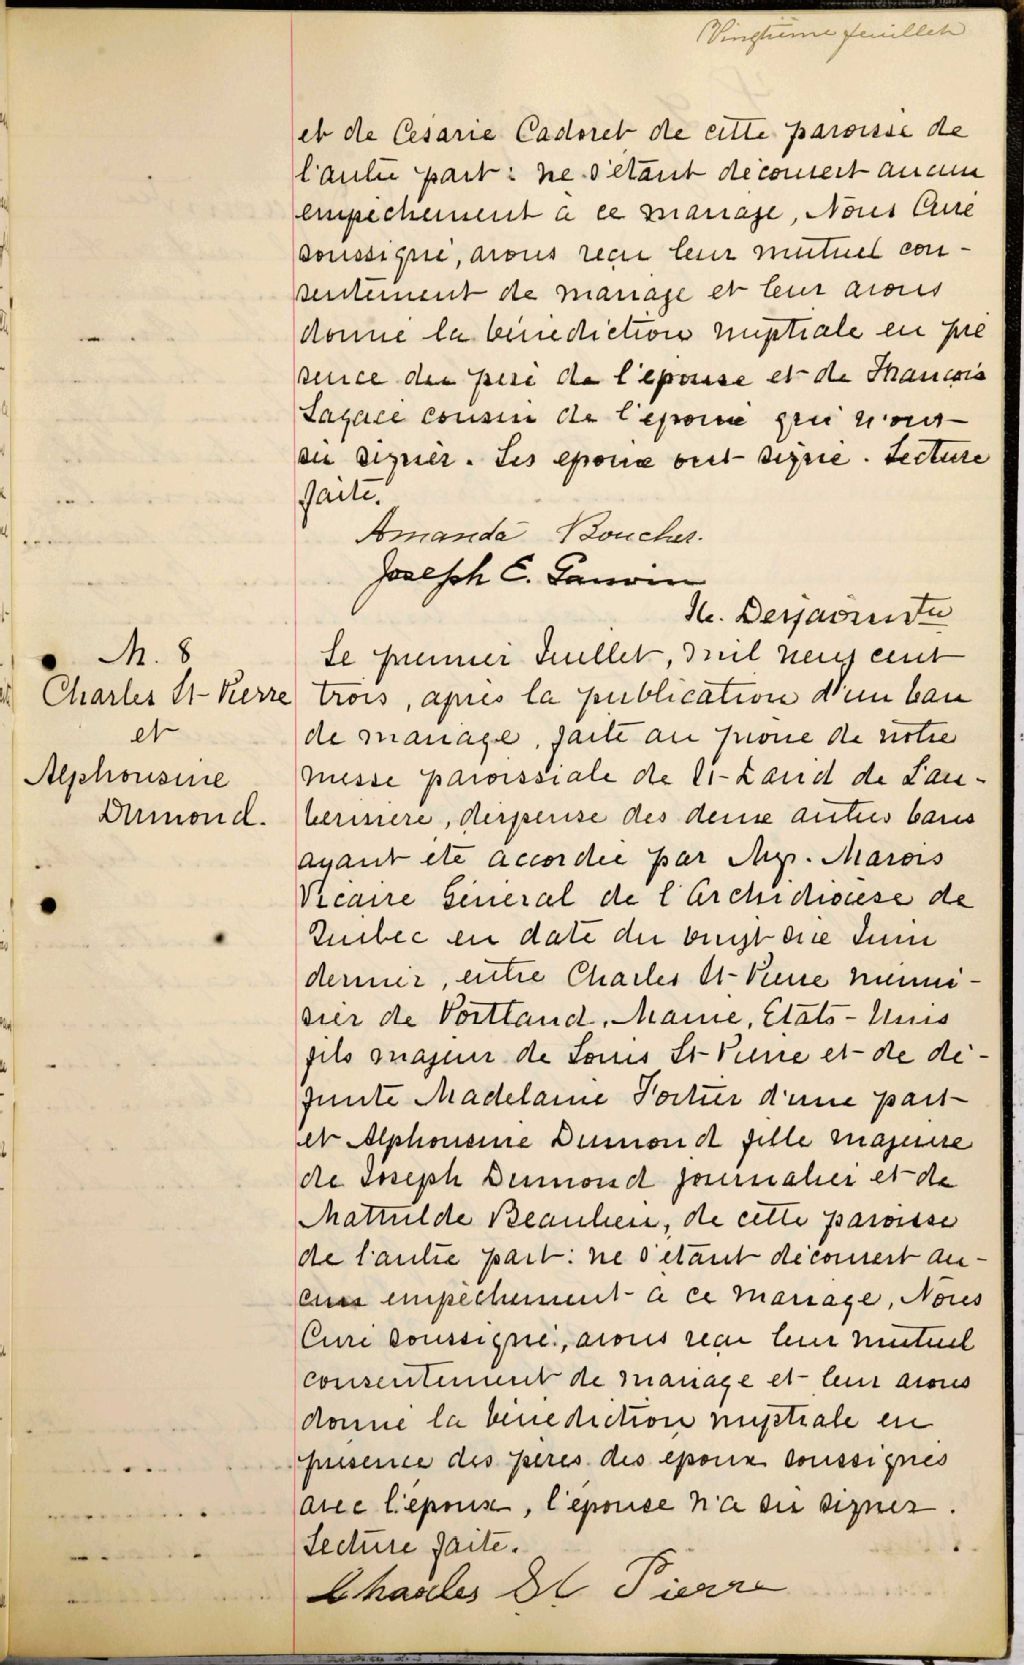 Vingtième feuillet
et de Césarie Cadoret de cette paroisse de
l'autre part : ne s'étant découvert aucun
empêchement à ce mariage, Nous Curé
soussigné, avons reçu leur mutuel con-
sentement de mariage et leur avons
donné la bénédiction nuptiale en pré
sence du père de l'épouse et de François
Lagacé cousin de l'époux qui n'ont
su signer. Les époux ont signé. Lecture
faite.
Amanda Boucher.
Joseph E. Gauvin
Desjardins Ptre
M. 8
Charles St-Pierre
et
Alphonsine
Dumond.
Le premier Juillet, mil neuf cent
trois, après la publication d'un ban
de mariage, faite au prône de notre
messe paroissiale de St-David de L'au-
berivière, dispense des deux autres bans
ayant été accordée par Mgr. Marois
Vicaire Général de l'Archidiocèse de
Québec en date du vingt-six Juin
dernier, entre Charles St-Pierre menui-
sier de Portland, Maine, Etats-Unis
fils majeur de Louis St-Pierre et de dé-
funte Madelaine Fortier d'une part
et Alphonsine Dumond fille majeure
de Joseph Dumond journalier et de
Mathilde Beaulieu, de cette paroisse
de l'autre part : ne s'étant découvert au-
cun empêchement à ce mariage, Nous
Curé soussigné, avons reçu leur mutuel
consentement de mariage et leur avons
donné la bénédiction nuptiale en
présence des pères des époux soussignés
avec l'époux, l'épouse n'a su signer.
Lecture faite.
Charles St Pierre